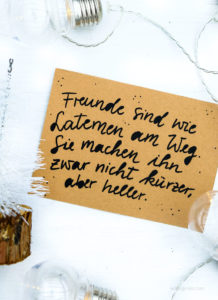 Freunde sind wie
Laternen am Weg.
Sie machen ihn
zwar nicht kürzer,
aber heller.